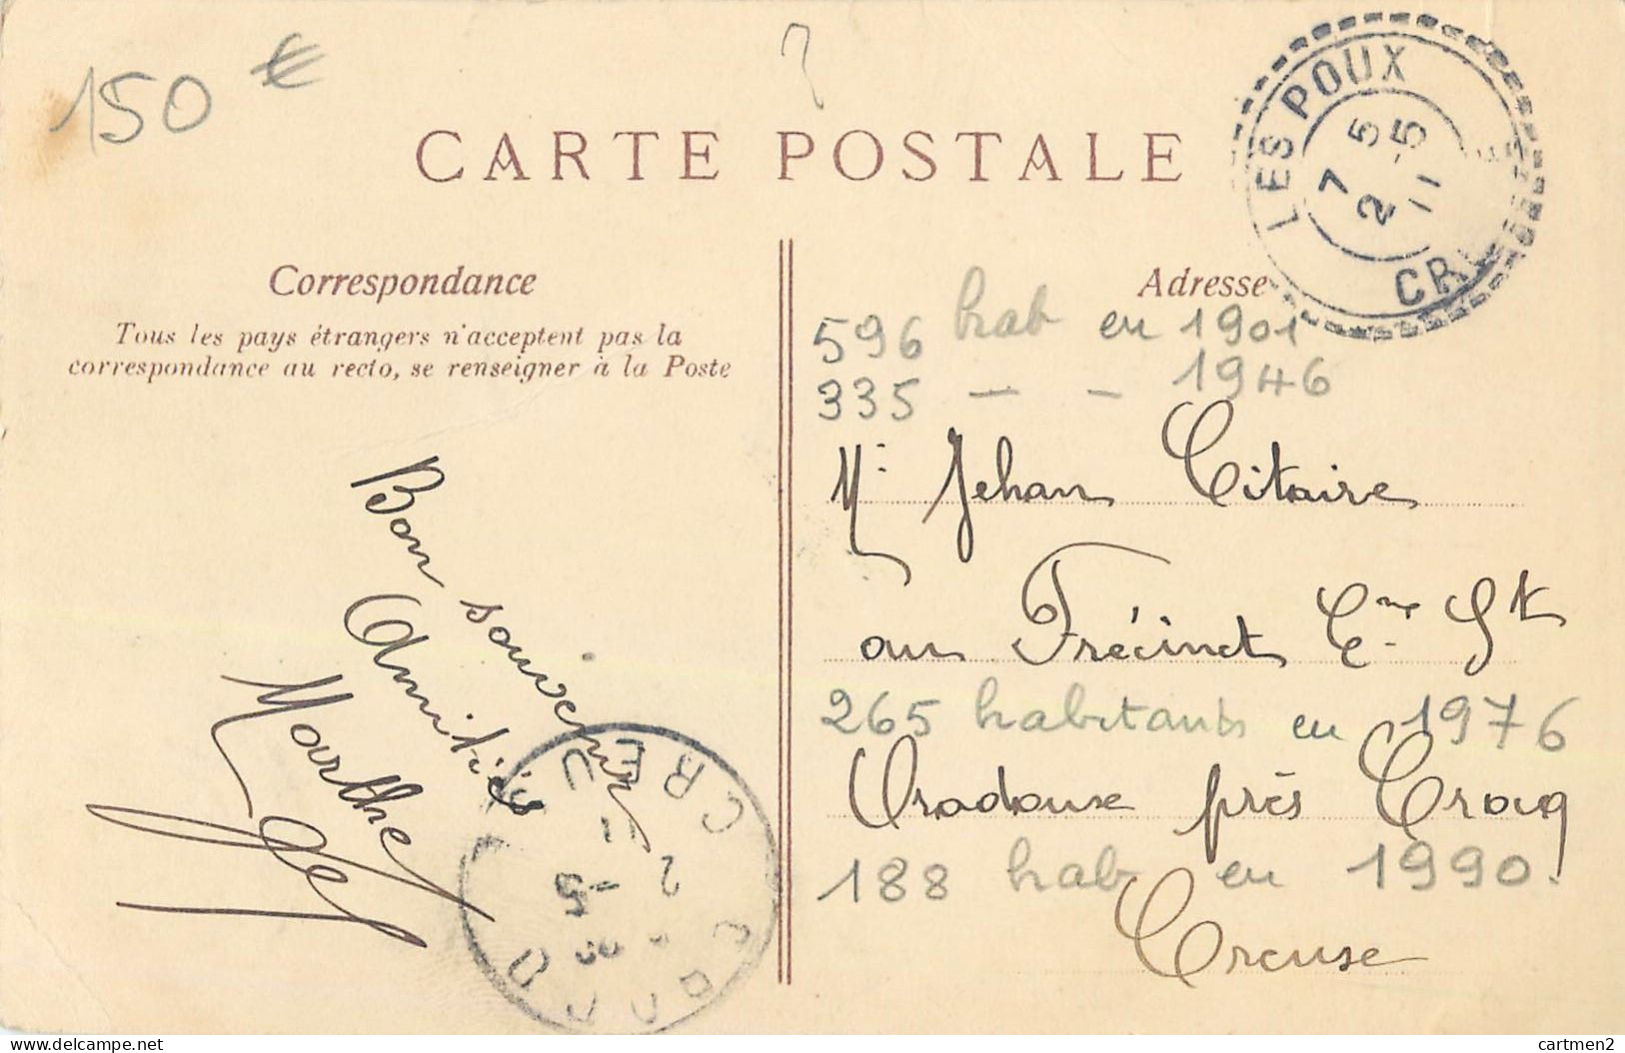 150 €
?
CARTE POSTALE
LES POUX
7 5
2 -5
11
Correspondance
Adresse
Tous les pays étrangers n'acceptent pas la
correspondance au recto, se renseigner à la Poste
596 hab en 1901
335 — - 1946
Bon souvenir
Amitiés
Marthe
Mr Jehan Citaire
au Frécinet Cne St
265 habitants en 1976
Oradoux près Crocq
188 hab en 1990.
Creuse
CREUSE
2 -5
cartmen2